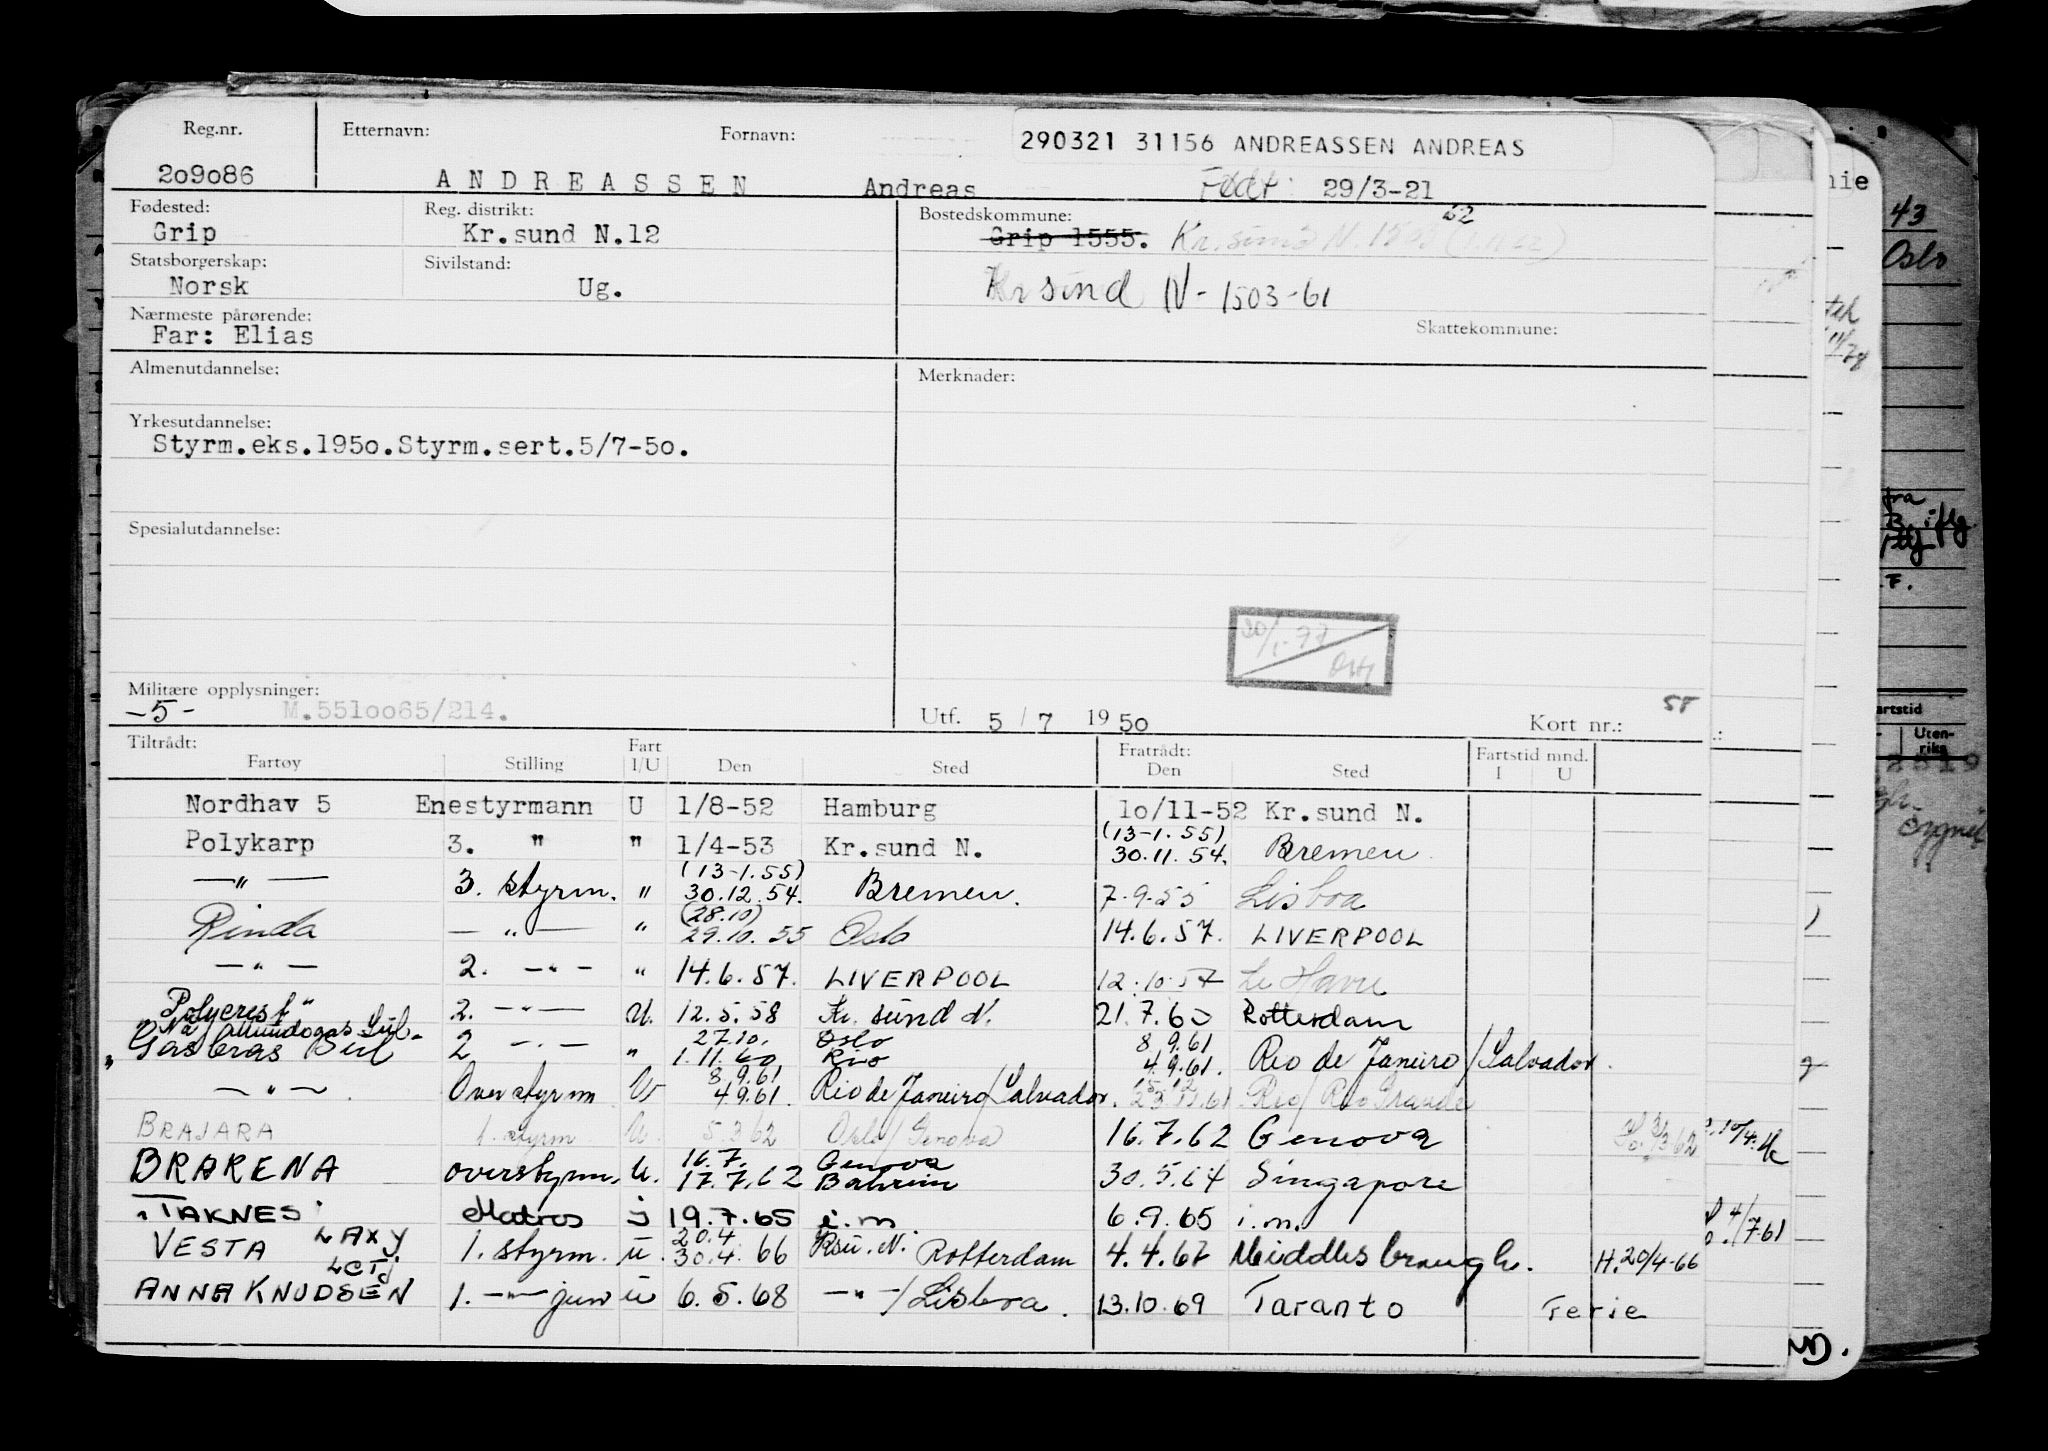 Reg.nr. Etternavn: Fornavn: 290321 31156 ANDREASSEN ANDREAS
209086 ANDREASSEN Andreas Født: 29/3-21
Fødested: Reg. distrikt: Bostedskommune:
Grip Kr.sund N.12 Grip 1555. Kr.sund N. 1503
Statsborgerskap: Sivilstand:
Norsk Ug. Kr sund N - 1503-61
Nærmeste pårørende: Skattekommune:
Far: Elias
Almenutdannelse: Merknader:
Yrkesutdannelse:
Styrm.eks.1950.Styrm.sert.5/7-50.
Spesialutdannelse:
20/1-77
Militære opplysninger: 58
-5- M.5510065/214. Utf. 5/7 1950 Kort nr.:
Tiltrådt: Fart Fratrådt: Fartstid mnd.
Fartøy Stilling I/U Den Sted Den Sted I U
Nordhav 5 Enestyrmann U 1/8-52 Hamburg 10/11-52 Kr.sund N.
Polykarp 3. " " 1/4-53 Kr.sund N. (13-1.55) 30.11.54. Bremen
—"— 3. styrm. " (13-1.55) 30.12.54. Bremen. 7.9.55 Lisboa
Rinda —"— " (28.10) 29.10.55 Oslo 14.6.57. LIVERPOOL
—"— 2. —"— " 14.6.57. LIVERPOOL 12.10.57 Le Havre
Polycrest 2. —"— U. 12.5.58 Kr. sund N. 21.7.60 Rotterdam
Gasbras 2 —"— " 27.10. Oslo 1.11.60 Rio 8.9.61 4.9.61. Rio de Janeiro/Salvador.
—"— Overstyrm U 8.9.61 4.9.61. Rio de Janeiro/Salvador. Rio/Rio Grande
BRAJARA 1. styrm U. 5.3.62 Oslo/Genova 16.7.62 Genova
BRARENA overstyrm. U. 16.7. Genova 17.7.62 Bahrein 30.5.64 Singapore
TAKNES Matros i 19.7.65 i.m 6.9.65 i.m.
VESTA LAXY 1. styrm. u. 20.4 30.4.66 Ksu. N. Rotterdam 4.4.67 Middlesbrough. H.20/4-66
ANNA KNUDSEN LCTJ 1. —"— jun u 6.5.68 —"—/Lisboa. 13.10.69 Taranto Ferie